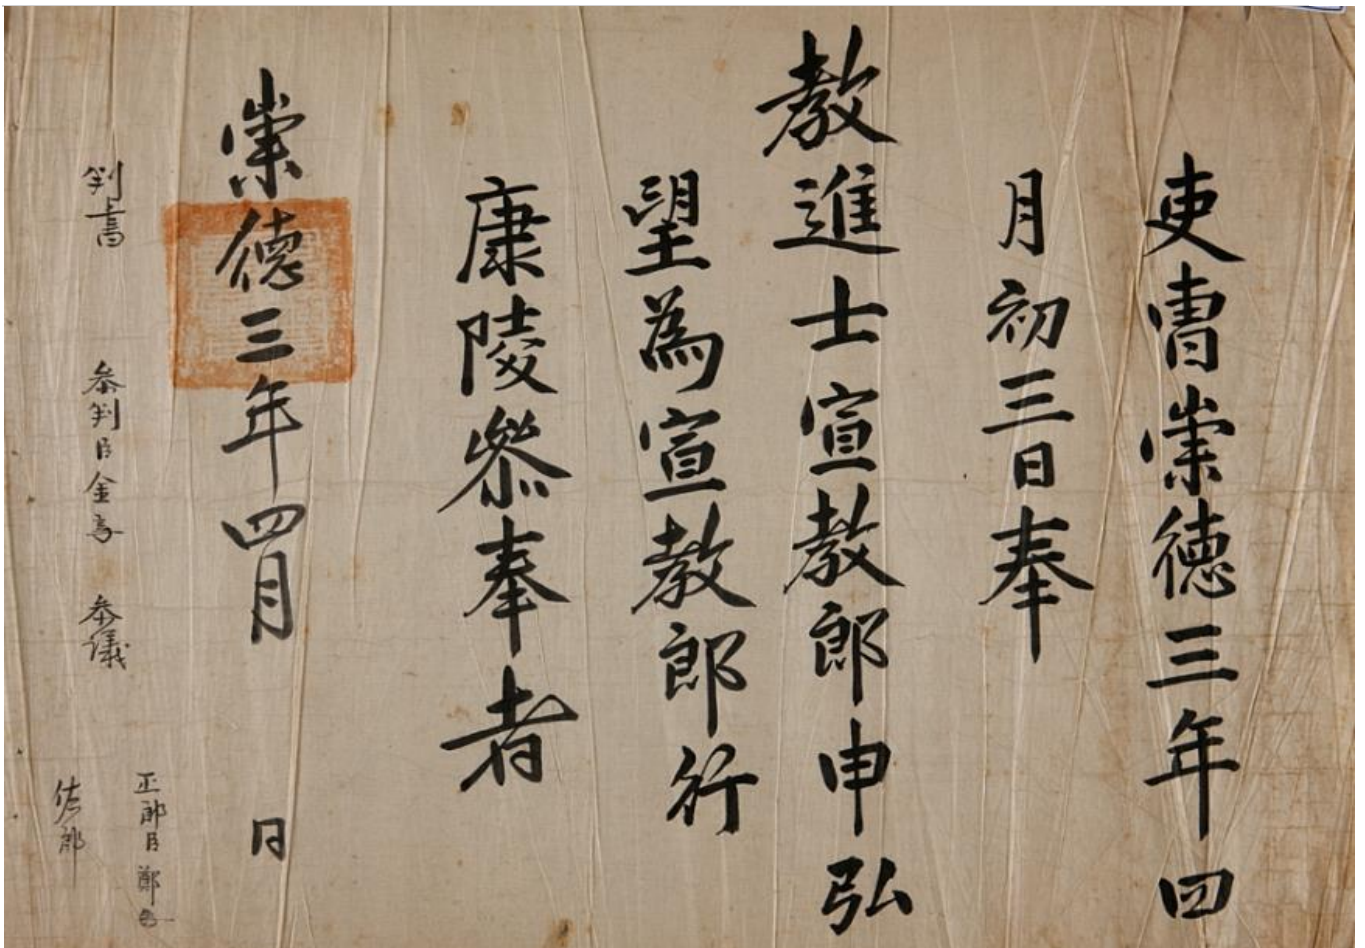 吏曹崇德三年四
月初三日奉
教進士宣教郎申弘
望爲宣教郎行
康陵叅奉者
崇德三年四月 日
判書 叅判臣金 叅議
正郎臣鄭
佐郎